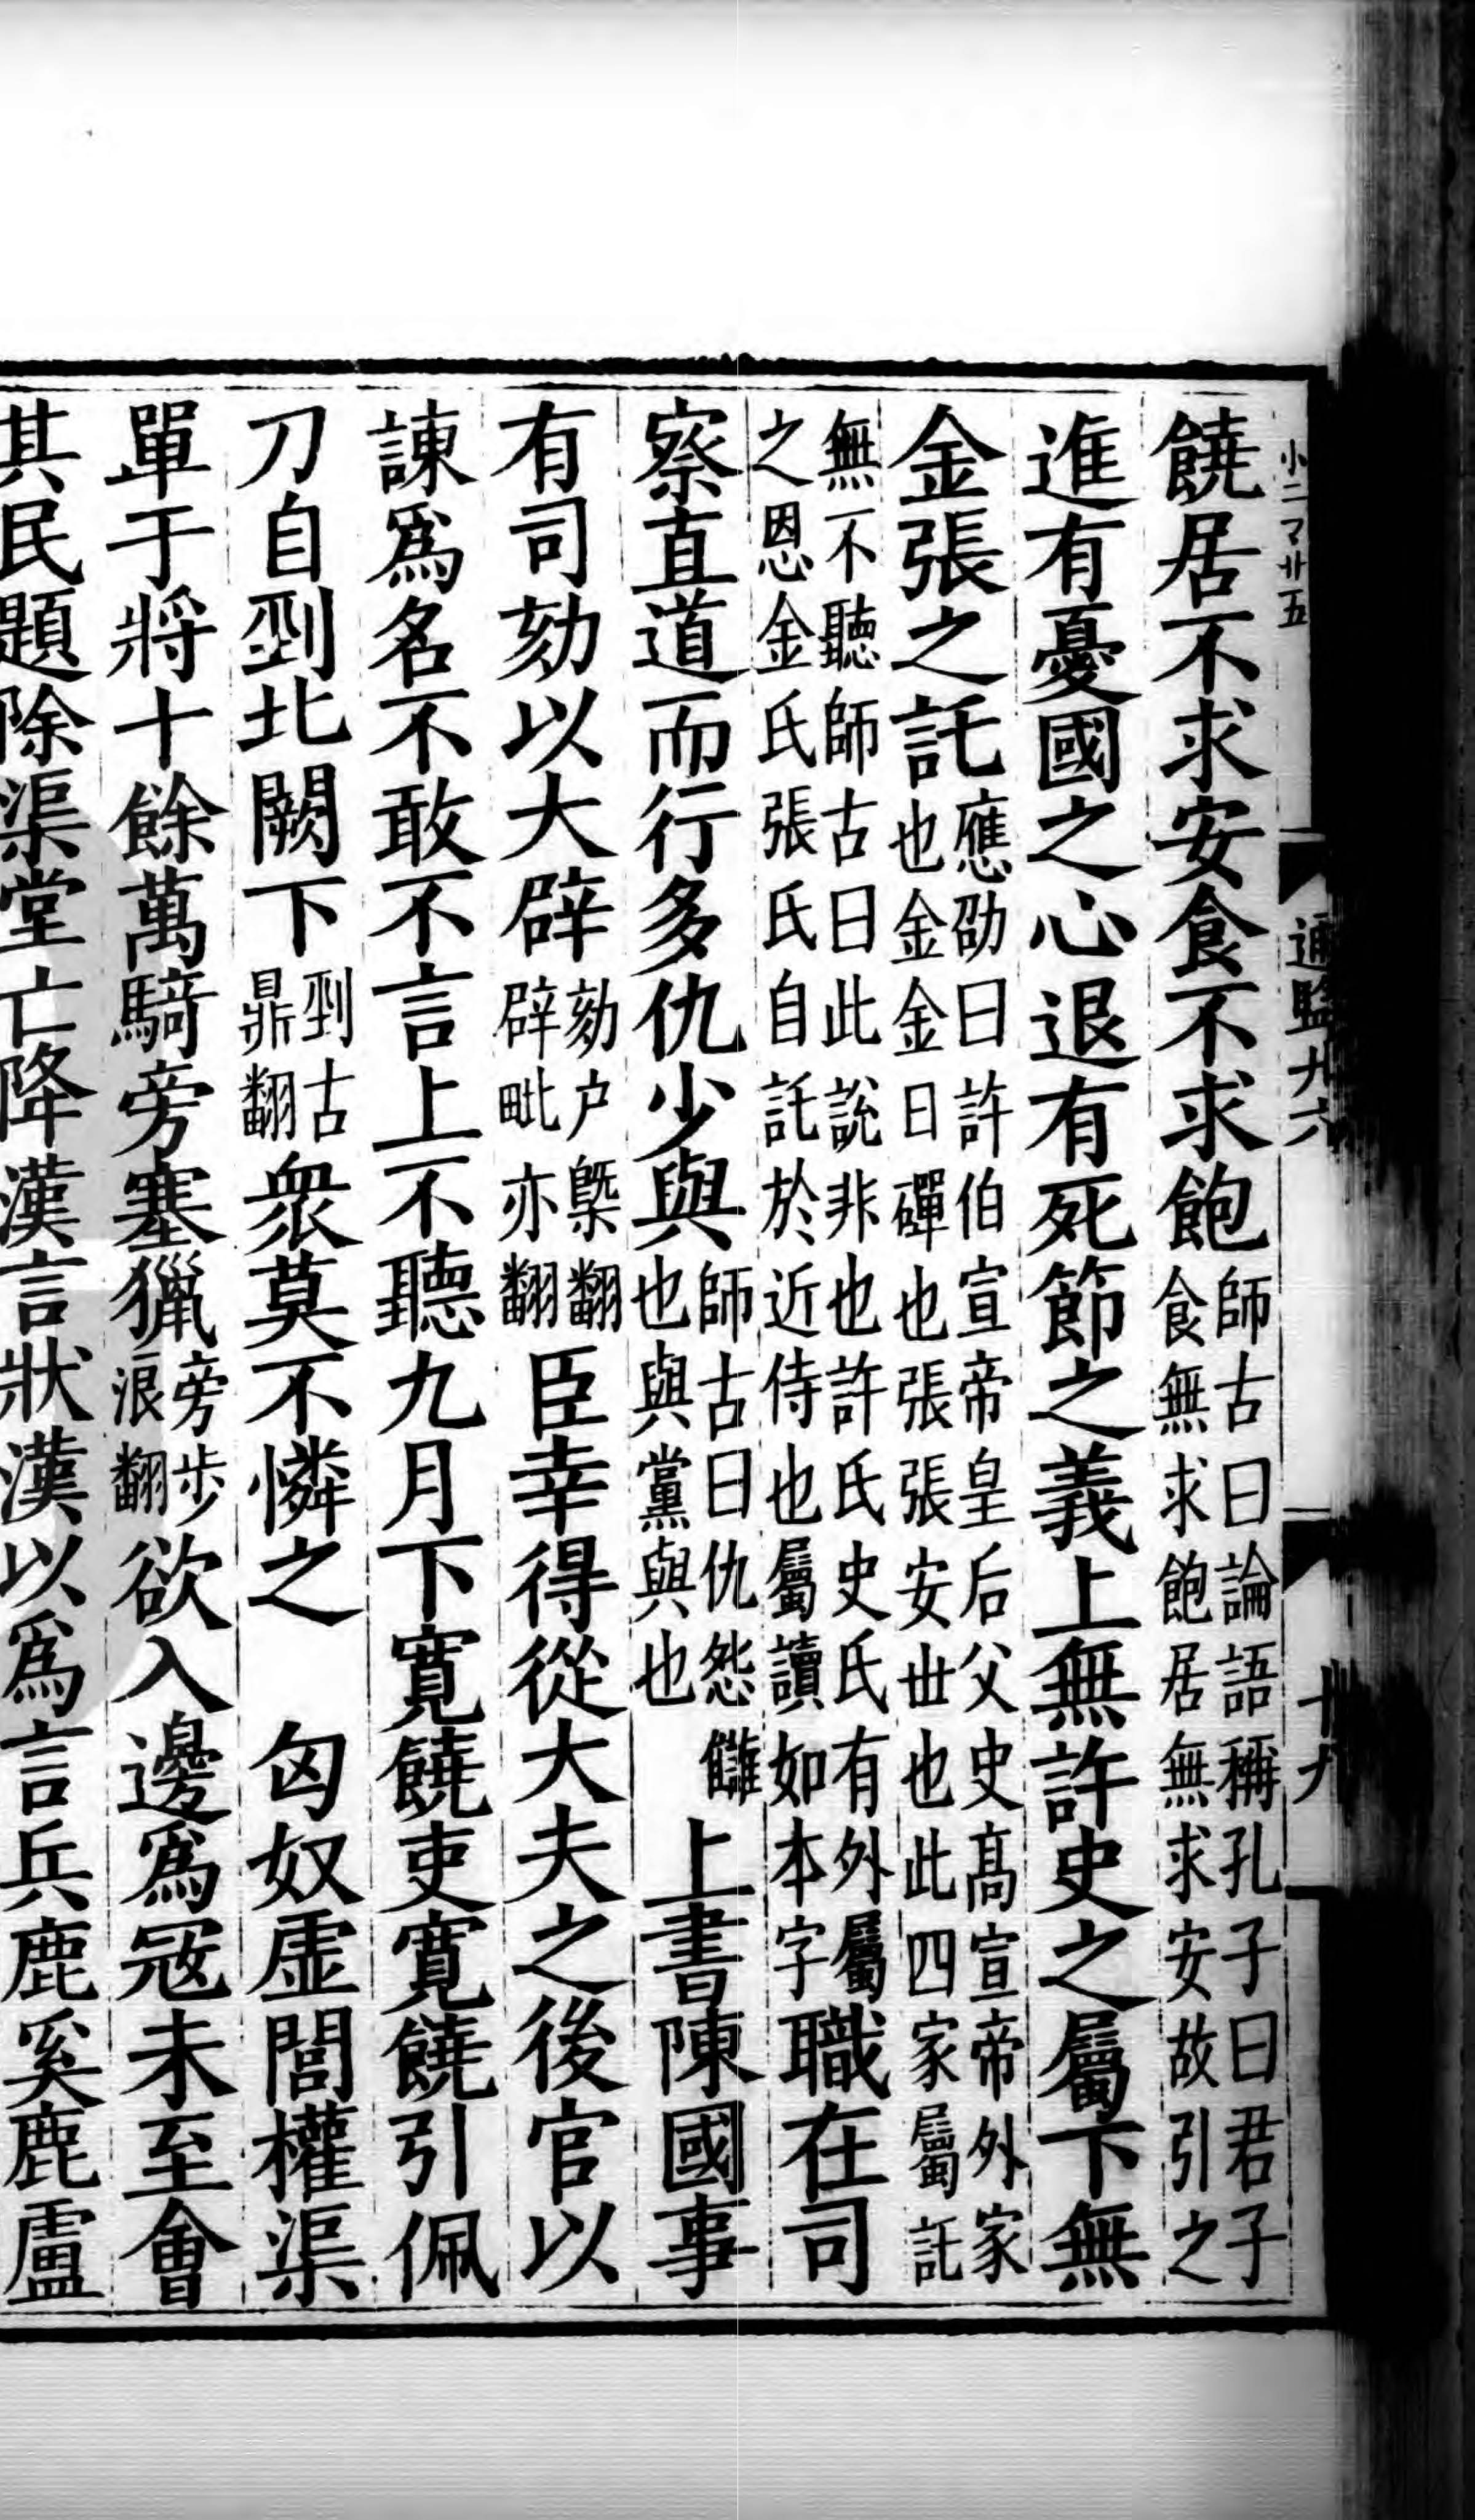 小二マ廿五
通鑑九六
十九
饒居不求安食不求飽師古曰論語稱孔子曰君子食無求飽居無求安故引之
進有憂國之心退有死節之義上無許史之屬下無
金張之託應劭曰許伯宣帝皇后父史高宣帝外家也金金日磾也張張安世也此四家屬託
無不聽師古曰此說非也許氏史氏有外屬之恩金氏張氏自託於近侍也屬讀如本字職在司
察直道而行多仇少與師古曰仇怨讎也與黨與也上書陳國事
有司劾以大辟劾户槩翻辟毗亦翻臣幸得從大夫之後官以
諫爲名不敢不言上不聽九月下寬饒吏寬饒引佩
刀自剄北闕下剄古鼎翻衆莫不憐之 匈奴虛閭權渠
單于將十餘萬騎旁塞獵旁步浪翻欲入邊爲寇未至會
其民題除渠堂亡降漢言狀漢以爲言兵鹿奚鹿盧